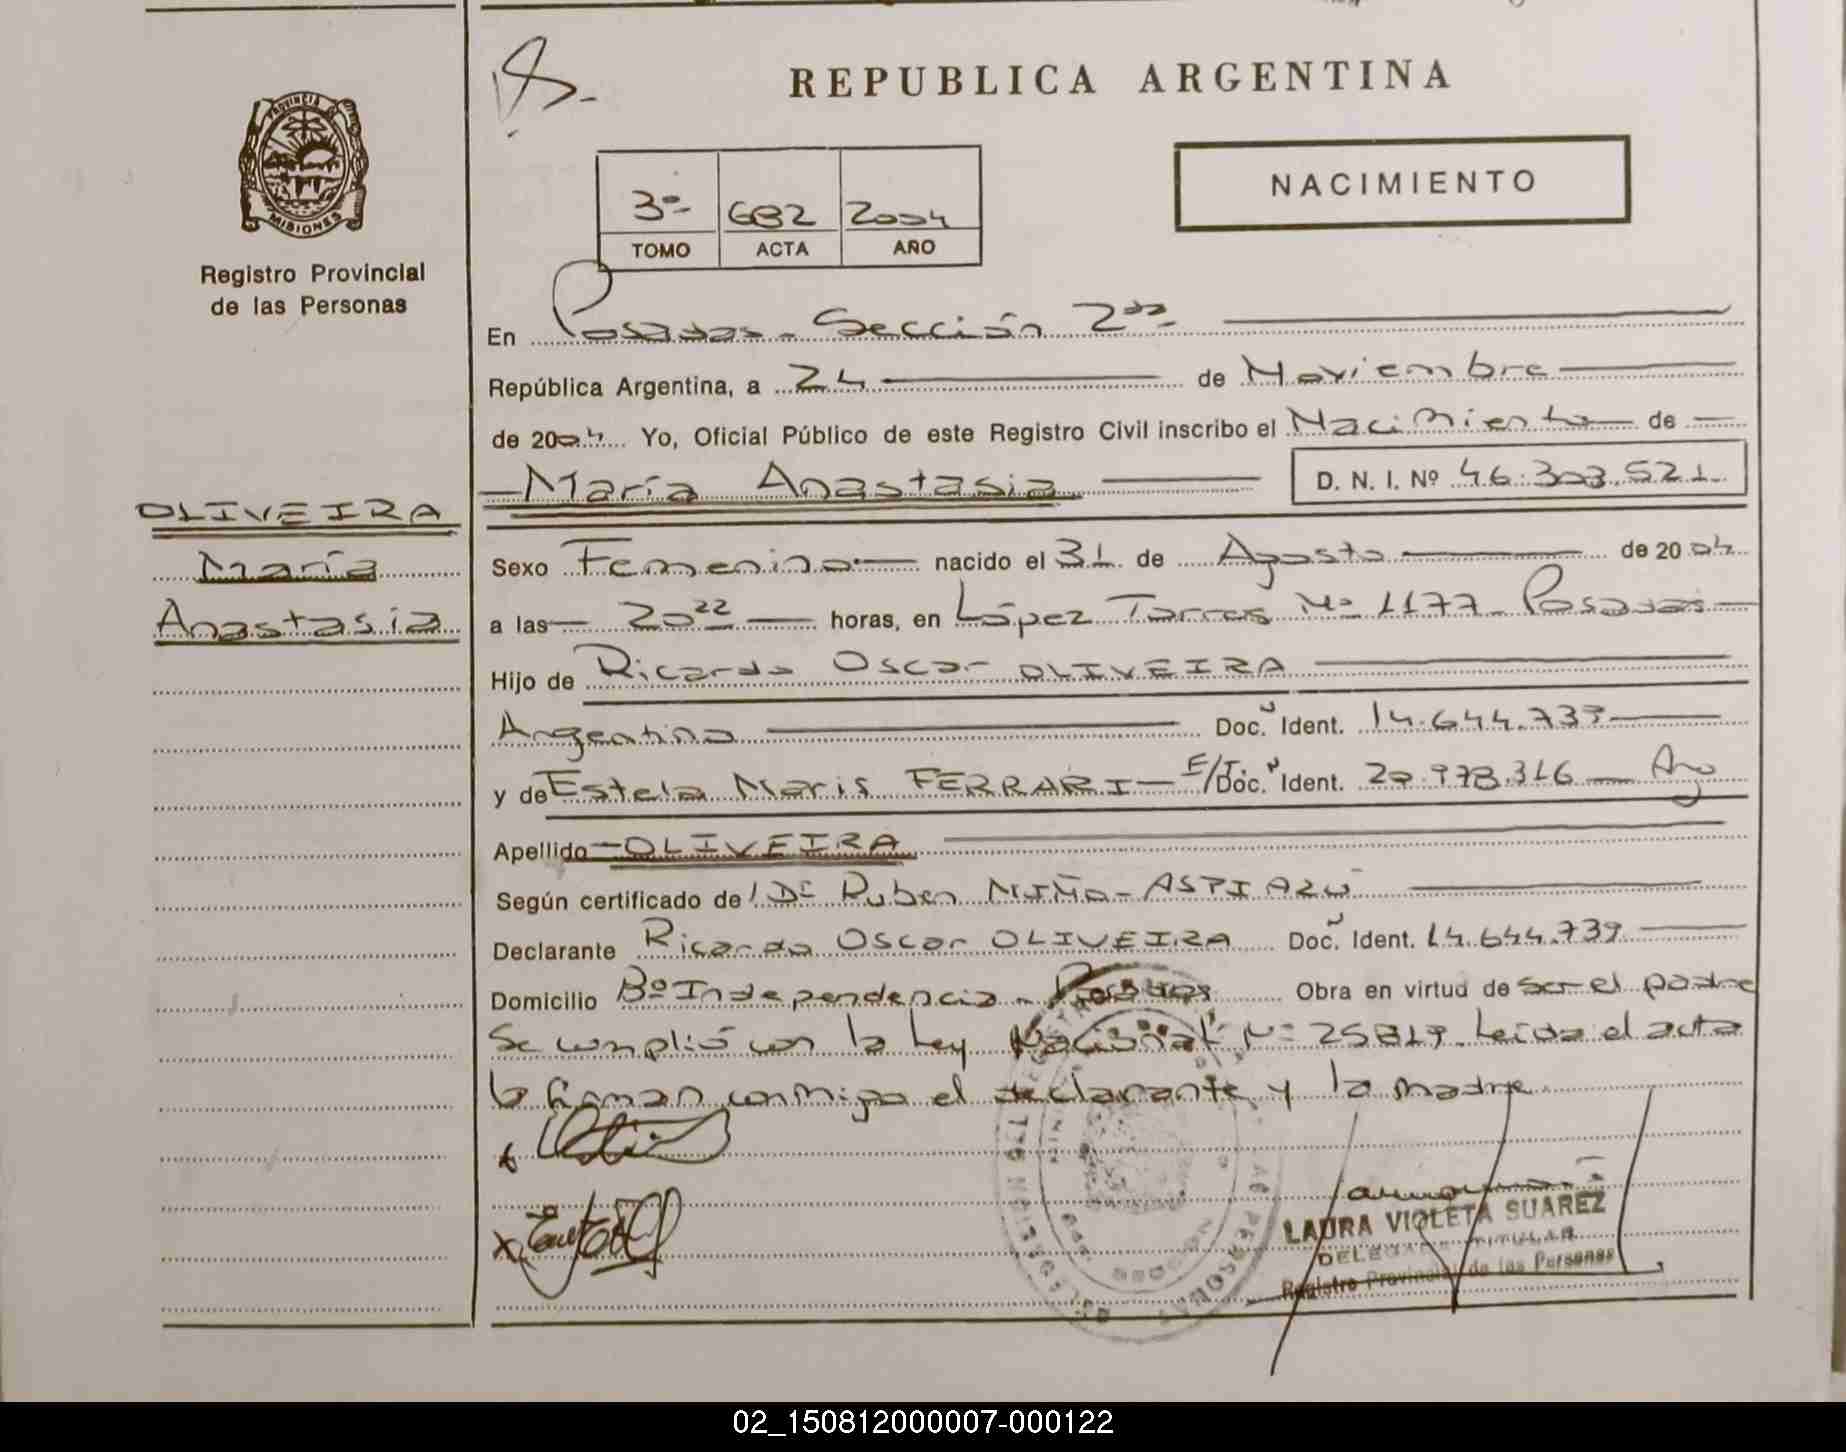 REPUBLICA ARGENTINA
PROVINCIA DE MISIONES
Registro Provincial
de las Personas
NACIMIENTO
3º 682 2004
TOMO ACTA AÑO
En Posadas - Sección 2da
República Argentina, a 24 de Noviembre
de 2004 Yo, Oficial Público de este Registro Civil inscribo el Nacimiento de
María Anastasia D. N. I. Nº 46.303.521
OLIVEIRA
María
Anastasia
Sexo Femenino nacido el 31 de Agosto de 2004
a las 20 22 horas, en López Torres Nº 1177 - Posadas
Hijo de Ricardo Oscar OLIVEIRA
Argentino Doc. Ident. 14.644.739
y de Estela Maris FERRARI E/T. Doc. Ident. 20.978.316 Arg
Apellido OLIVEIRA
Según certificado de Dr Ruben NIÑO - ASPIAZÚ
Declarante Ricardo Oscar OLIVEIRA Doc. Ident. 14.644.739
Domicilio Bº Independencia - Posadas Obra en virtud de ser el padre
Se cumplió con la Ley Nacional Nº 25819. Leída el acta
la firman conmigo el declarante y la madre
LAURA VIOLETA SUAREZ
DELEGADA TITULAR
Registro Provincial de las Personas
02_150812000007-000122